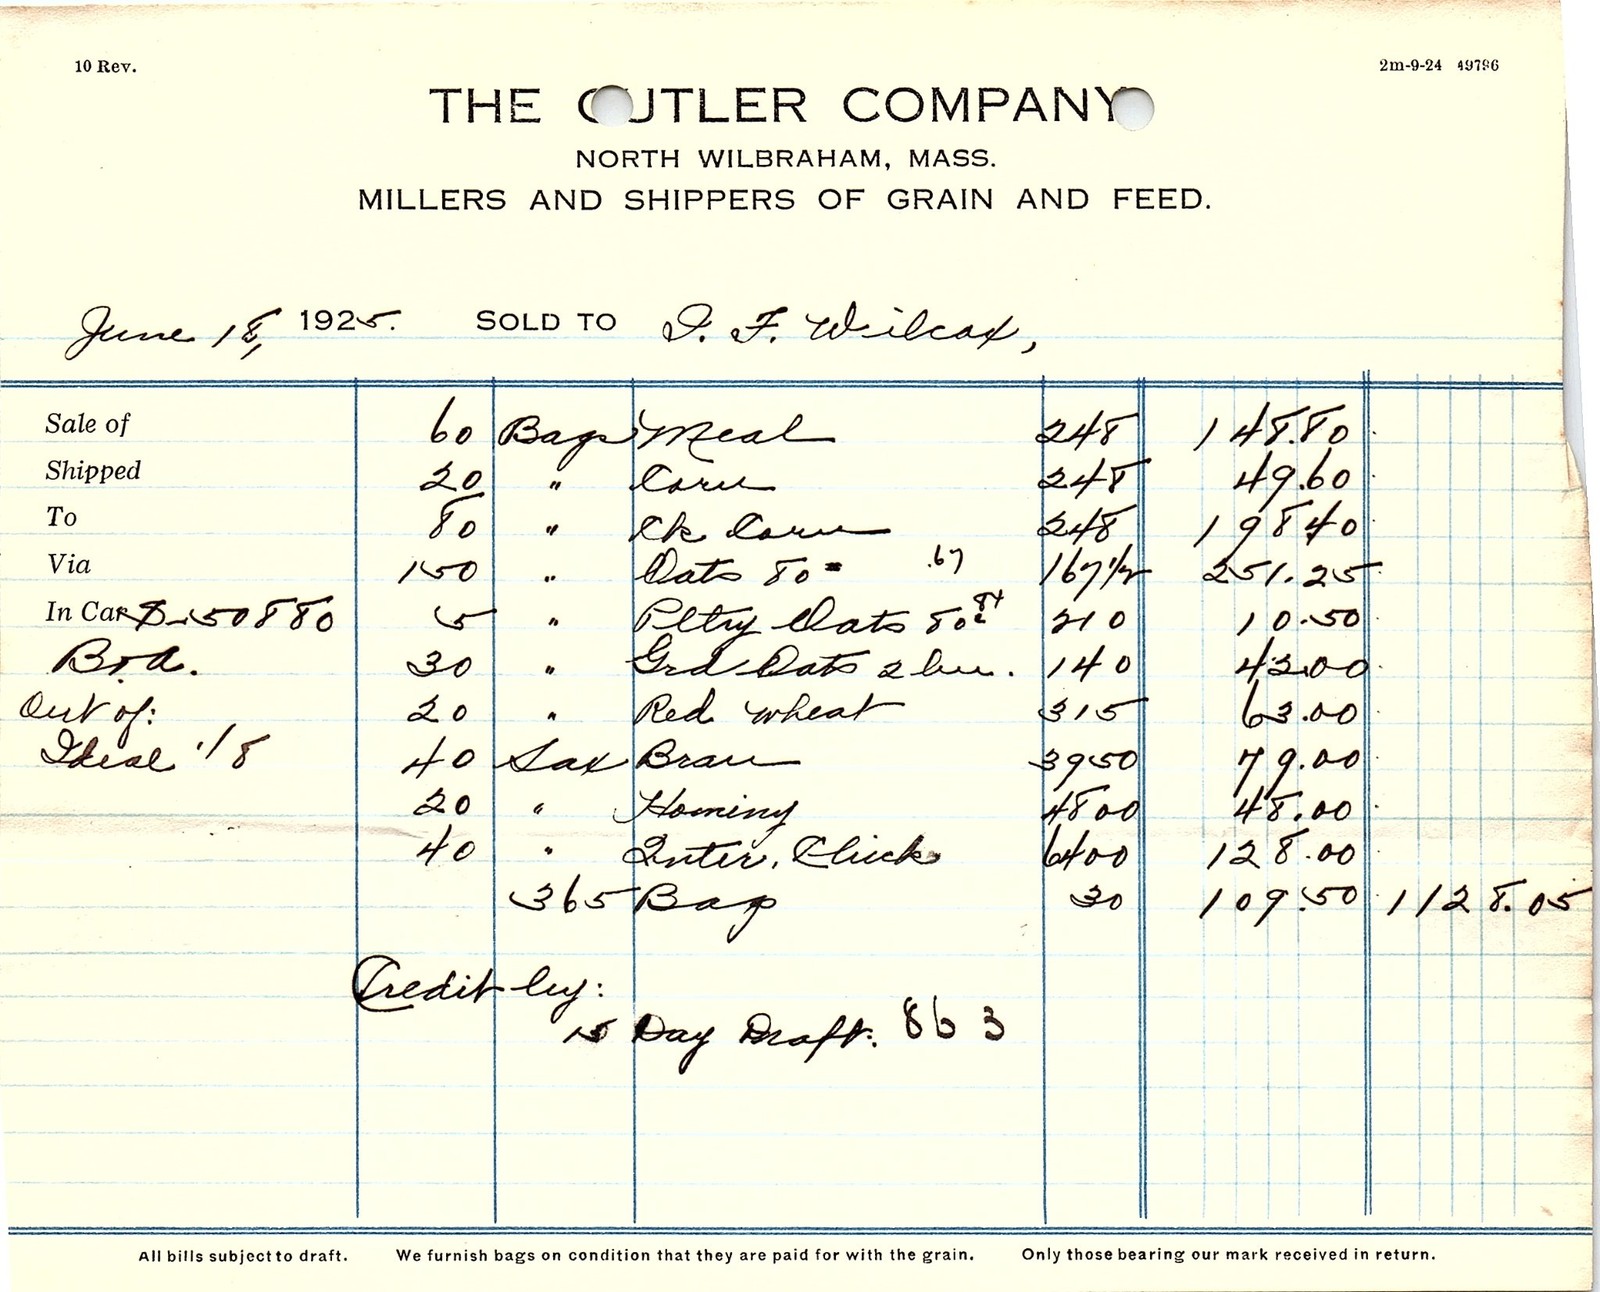 10 Rev. 2m-9-24 49796
THE CUTLER COMPANY
NORTH WILBRAHAM, MASS.
MILLERS AND SHIPPERS OF GRAIN AND FEED.
June 18, 1925. SOLD TO I. F. Wilcox,
Sale of 60 Bags Meal 248 148.80
Shipped 20 " Corn 248 49.60
To 80 " Ck Corn 248 198 40
Via 150 " Oats 80# .67 167 1/2 251.25
In Car 50880 5 " Pltry Oats 80# 84 210 10.50
B.&A. 30 " Grd Oats 2 bu. 140 42.00
Out of: 20 " Red Wheat 315 63.00
Ideal 1/8 40 Sax Bran 3950 79.00
20 " Hominy 4800 48.00
40 " Inter. Chick 6400 128.00
365 Bags 30 109.50 1128.05
Credit by:
15 Day Draft. 863
All bills subject to draft. We furnish bags on condition that they are paid for with the grain. Only those bearing our mark received in return.